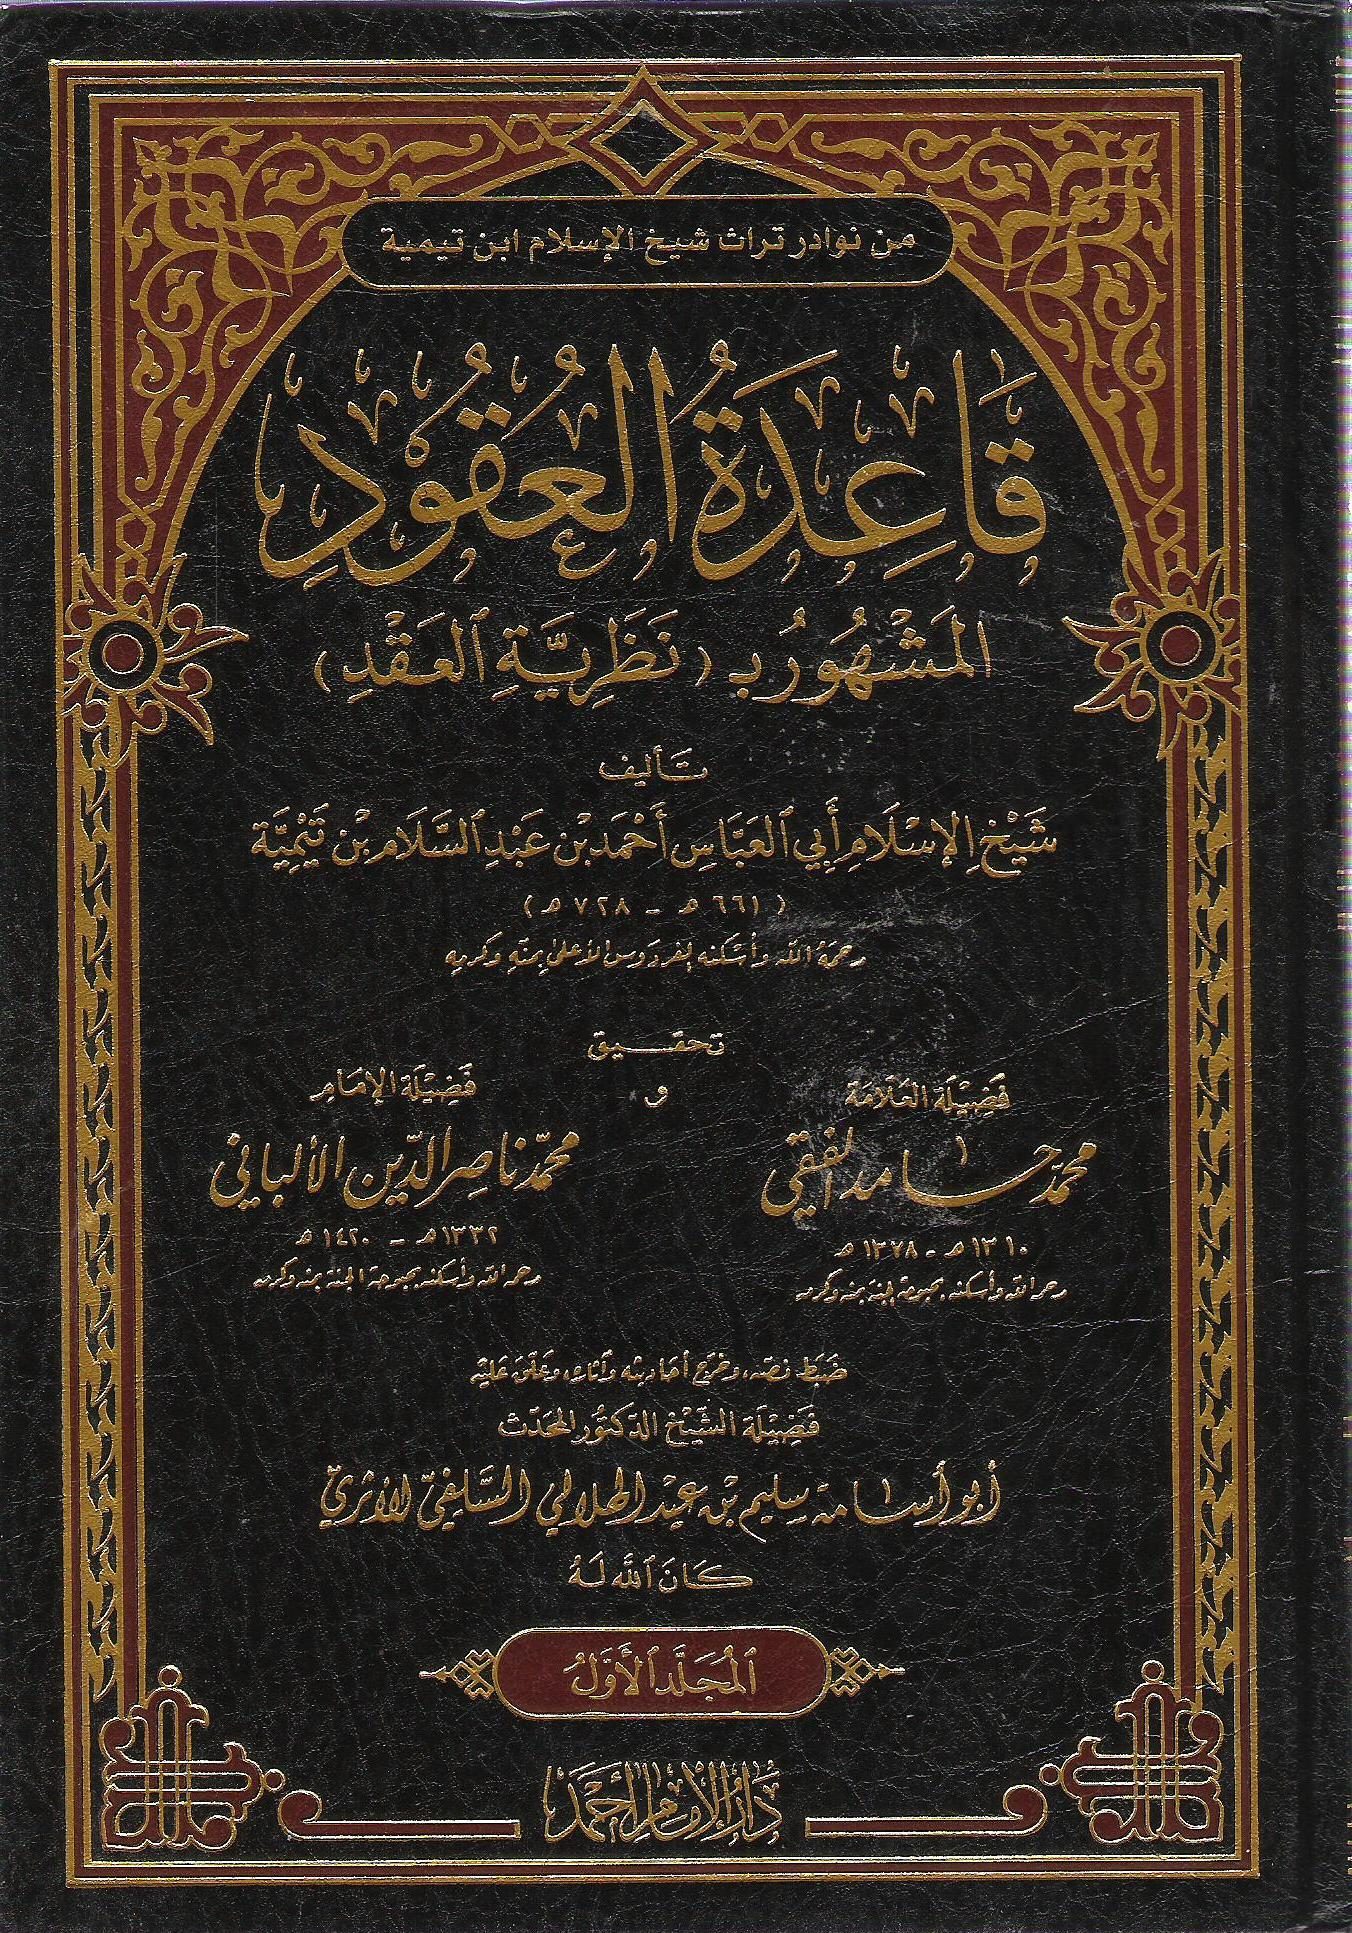 من نوادر تراث شيخ الإسلام ابن تيمية
قَاعِدَةُ العُقُودِ
المَشْهُورُ بـ (نَظَرِيَّةِ العَقْدِ)
تأليف
شَيْخِ الإِسْلَامِ أَبِي العَبَّاسِ أَحْمَد بْن عَبْدِ السَّلَام بْن تَيْمِيَّة
(٦٦١ هـ - ٧٢٨ هـ)
رحمهُ الله وأسكنه الفردوس الأعلى بمنّهِ وكرمِهِ
تحقيق
فَضِيْلَة العَلَّامَة
محمّد حامد الفقي
١٣١٠هـ - ١٣٧٨هـ
رحمه الله وأسكنه بحبوحة الجنة بمنه وكرمه
و
فَضِيْلَة الإِمَامِ
محمّد ناصر الدّين الألباني
١٣٣٢هـ - ١٤٢٠هـ
رحمه الله وأسكنه بحبوحة الجنة بمنه وكرمه
ضَبَطَ نصّه، وخرّج أحاديثه وآثاره، وعَلّقَ عَلَيْه
فَضِيْلَة الشَّيْخ الدكتُور المحَدّث
أبو أسامة سليم بْن عيْد الهلالي السَّلفيّ الأثريّ
كَانَ اللهُ لَهُ
المُجَلَّد الأَوَّلُ
دَارُ الإِمَام أَحْمَد